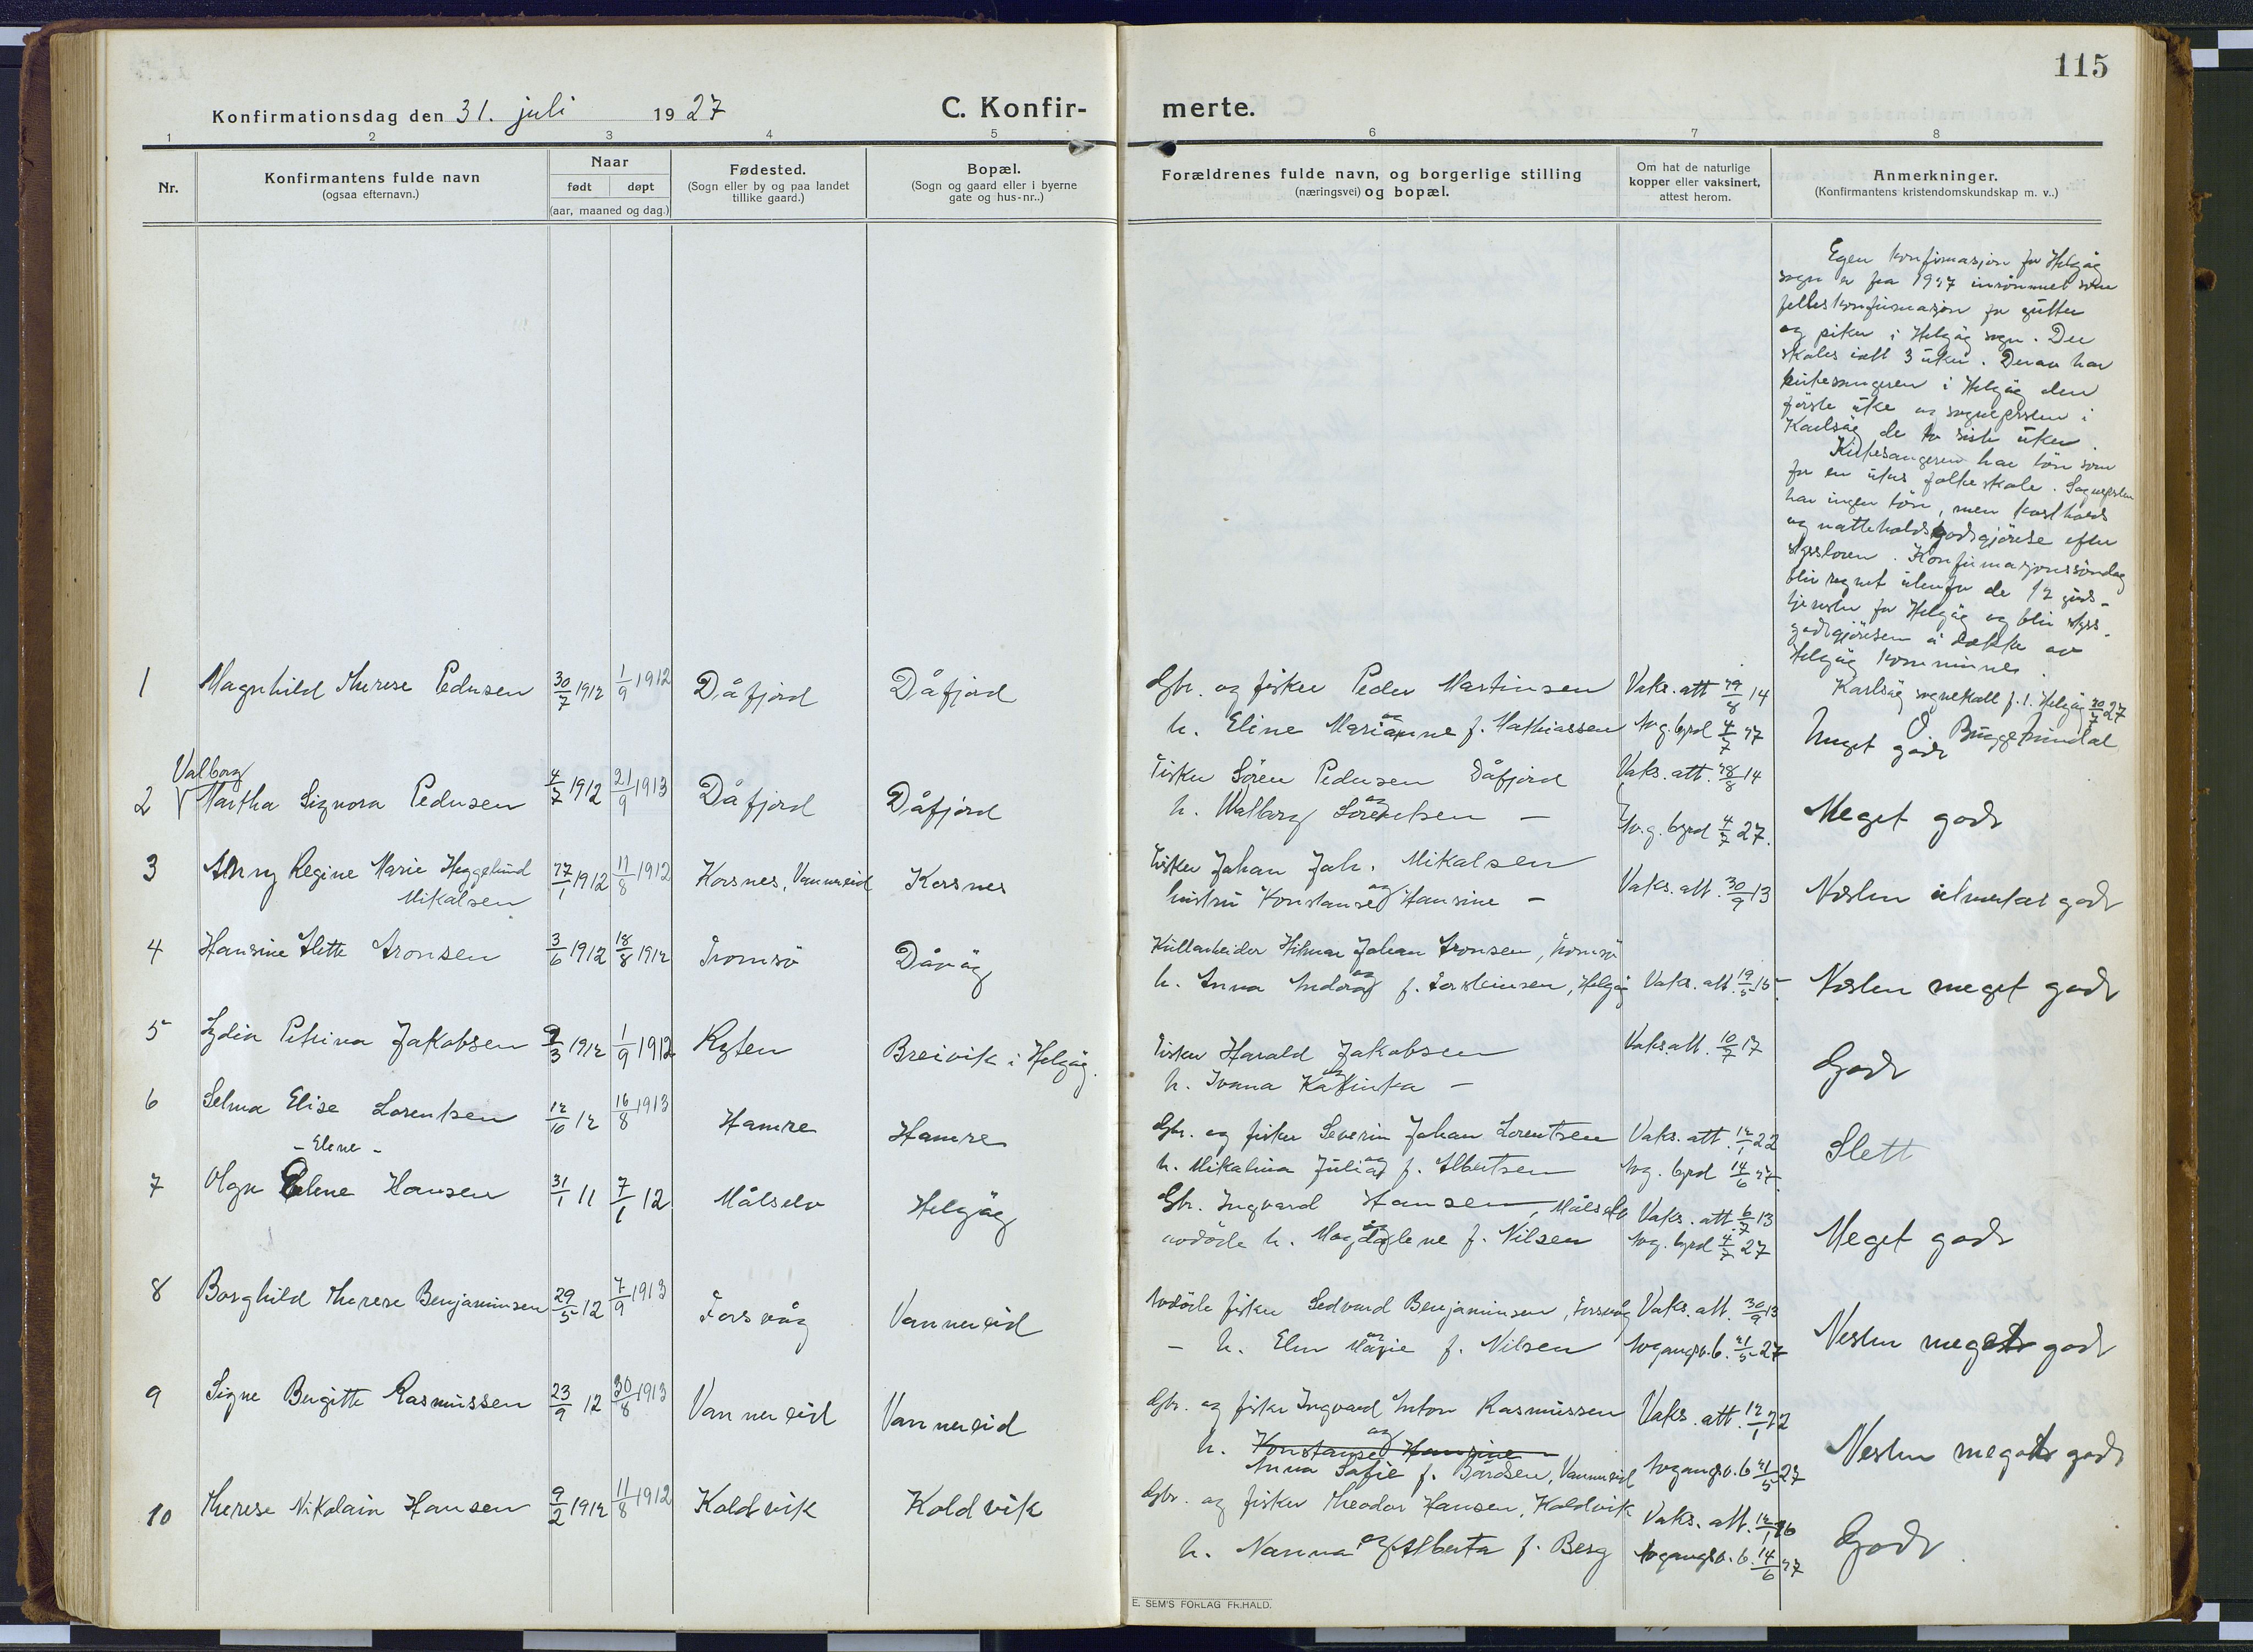 115
Konfirmationsdag den 31. juli 1927
C. Konfirmerte.
1 2 3 4 5 6 7 8
Nr.
Konfirmantens fulde navn
(ogsaa efternavn.)
Naar
født døpt
(aar, maaned og dag.)
Fødested.
(Sogn eller by og paa landet
tillike gaard.)
Bopæl.
(Sogn og gaard eller i byerne
gate og hus-nr..)
Forældrenes fulde navn, og borgerlige stilling
(næringsvei) og bopæl.
Om hat de naturlige
kopper eller vaksinert,
attest herom.
Anmerkninger.
(Konfirmantens kristendomskundskap m. v..)
Egen konfirmasjon for Helgøy
sogn er fra 1927 som
felleskonfirmasjon for gutter
og piker i Helgøy sogn. Der
skoles ialt 3 uker. Derav har
kirkesangeren i Helgøy den
første uke og sognepresten i
Karlsøy de to siste uker.
Kirkesangeren har lön som
for en ukes folkeskole. Sognepresten
har ingen lön, men kostholds
og natteholdsgodtgjörelse efter
skyssloven. Konfirmasjonssöndag
blir regnet utenfor de 12 guds-
tjenester for Helgøy og blir skyss-
godtgjörelsen å dekke av
Helgøy kommune.
Karlsøy sognekall p.t. Helgøy 30/7 27
1 Magnhild Therese Pedersen 30/7 1912 1/9 1912 Dåfjord Dåfjord
Gbr. og fisker Peder Martinsen Vaks. att 29/8 14
og
h. Eline Marianne f. Mathiassen Nvg. byrd 4/7 27 Meget godt
Valborg
2 Martha Signora Pedersen 4/7 1912 21/9 1913 Dåfjord Dåfjord
Fisker Sören Pedersen Dåfjord Vaks. att. 28/8 14
og
h. Walborg Sorentsen - 4/7 27. Meget godt
3 Anny Regine Marie Heggelund 27/1 1912 11/8 1912 Korsnes, Vannereid Korsnes
Mikalsen
Fisker Johan Joh. Mikalsen
og
hustru Konstanse Hansine - Vaks. att. 30/9 13 Nesten utmerket godt
4 Hansine Alette Aronsen 3/6 1912 18/8 1912 Tromsö Dåvöy
Kullarbeider Hilmar Johan Aronsen, Tromsö
og
h. Anna Indora f. Torsteinsen, Helgöy Vaks. att. 19/5 15. Nesten meget godt
5 Lydia Petrina Jakobsen 9/3 1912 1/9 1912 Ryten Breivik i Helgöy.
Fisker Harald Jakobsen Vaks. att. 10/7 17
og
h. Ivana Katinka - Godt
6 Selma Elise Lorentsen 12/10 12 16/8 1913 Hamre Hamre
Gbr. og fisker Severin Johan Lorentsen Vaks. att. 12/1 22
og
h. Mikalina Julia f. Albertsen 14/6 27. Slett
- Elene -
7 Olga Elene Hansen 31/1 11 7/1 12 Målselv Helgöy
Gbr. Ingvard Hansen, Målselv Vaks. att. 6/7 13
og
avdöde h. Magdalene f. Nilsen 4/7 27 Meget godt
8 Borghild Therese Benjaminsen 29/5 12 7/9 1913 Torsvåg Vannereid
Avdöde fisker Sedvard Benjaminsen, Torsvåg Vaks. att. 30/9 13
og
- h. Elen Marie f. Nilsen 21/5 27 Nesten meget godt
9 Signe Bergitte Rasmussen 23/9 12 30/8 1913 Vannereid Vannereid
Gbr. og fisker Ingvard Anton Rasmussen Vaks. att. 12/1 22
og
h. Konstanse Hansine
Anna Sofie f. Bårdsen, Vannereid 21/5 27 Nesten meget godt
10 Therese Nikolain Hansen 9/2 1912 11/8 1912 Koldvik Koldvik
Gbr. og fisker Theodor Hansen, Koldvik Vaks. att. 12/1 26
h. Nanna og Alberta f. Berg 14/6 27 Godt.
E. SEM'S FORLAG FR.HALD.